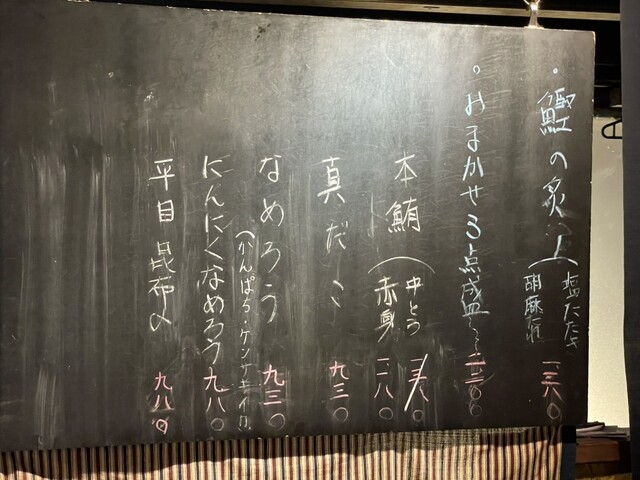 の炙り(塩たたき
胡麻
おまかせ3点盛〜
本鮪(中とろ
赤身 一一八〇
真だこ 九三〇
なめろう 九三〇
(かんぱち・ケンサキイカ)
にんにくなめろう 九八〇
平目昆布〆 九八〇